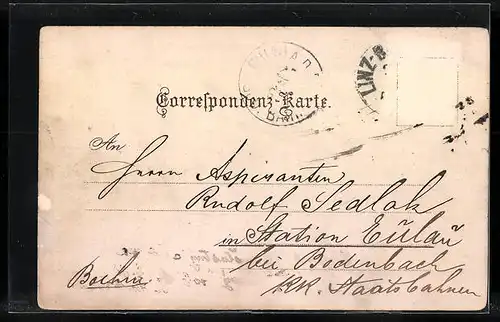 LINZ-
Correspondenz-Karte.
An
Herrn Aspiranten
Rudolf Sedlak
in Station Eulau
bei Bodenbach
Boehm
kk. Staatsbahnen